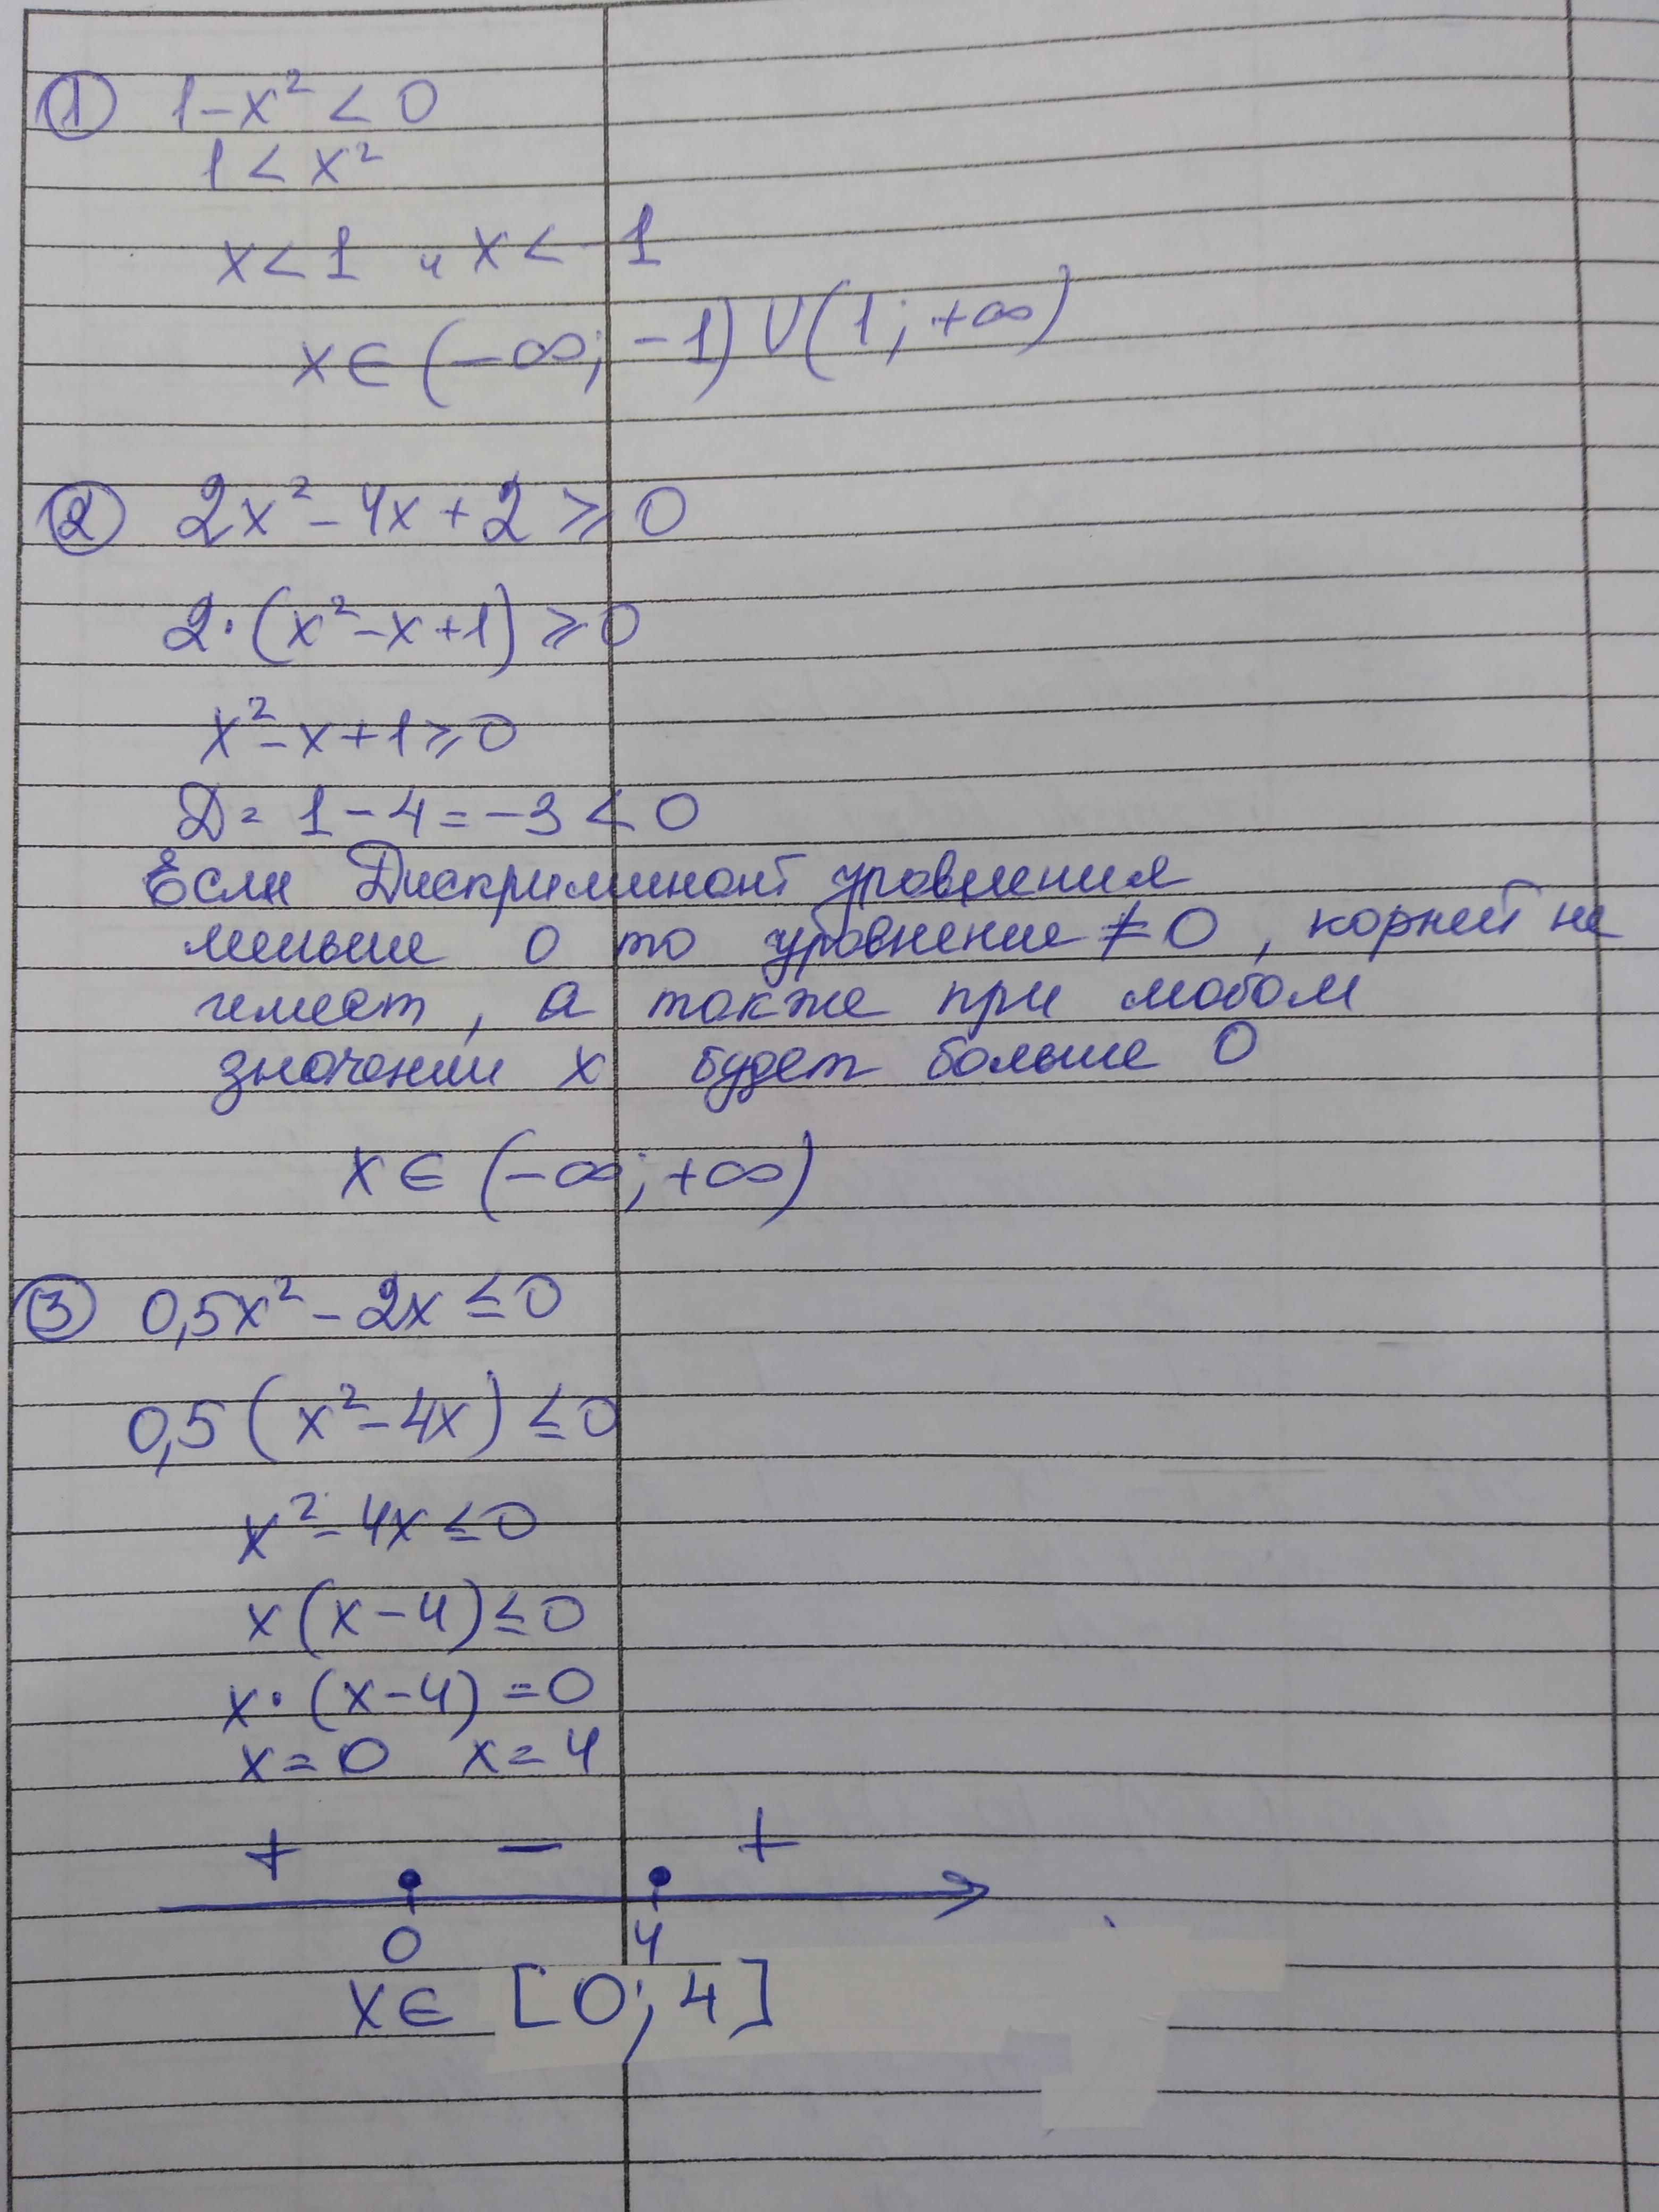 ① 1-x² < 0
1 < x²
x < 1 и x < -1
x ∈ (-∞; -1) ∪ (1; +∞)
② 2x² - 4x + 2 ⩾ 0
2·(x² - x + 1) ⩾ 0
x² - x + 1 ⩾ 0
D = 1 - 4 = -3 < 0
Если Дискриминант уровнения
меньше 0 то уровнение ≠ 0, корней не
имеет, а также при любом
значении x будет больше 0
x ∈ (-∞; +∞)
③ 0,5x² - 2x ≤ 0
0,5(x² - 4x) ≤ 0
x² - 4x ≤ 0
x(x - 4) ≤ 0
x·(x - 4) = 0
x = 0 x = 4
+ - +
0 4
x ∈ [0; 4]